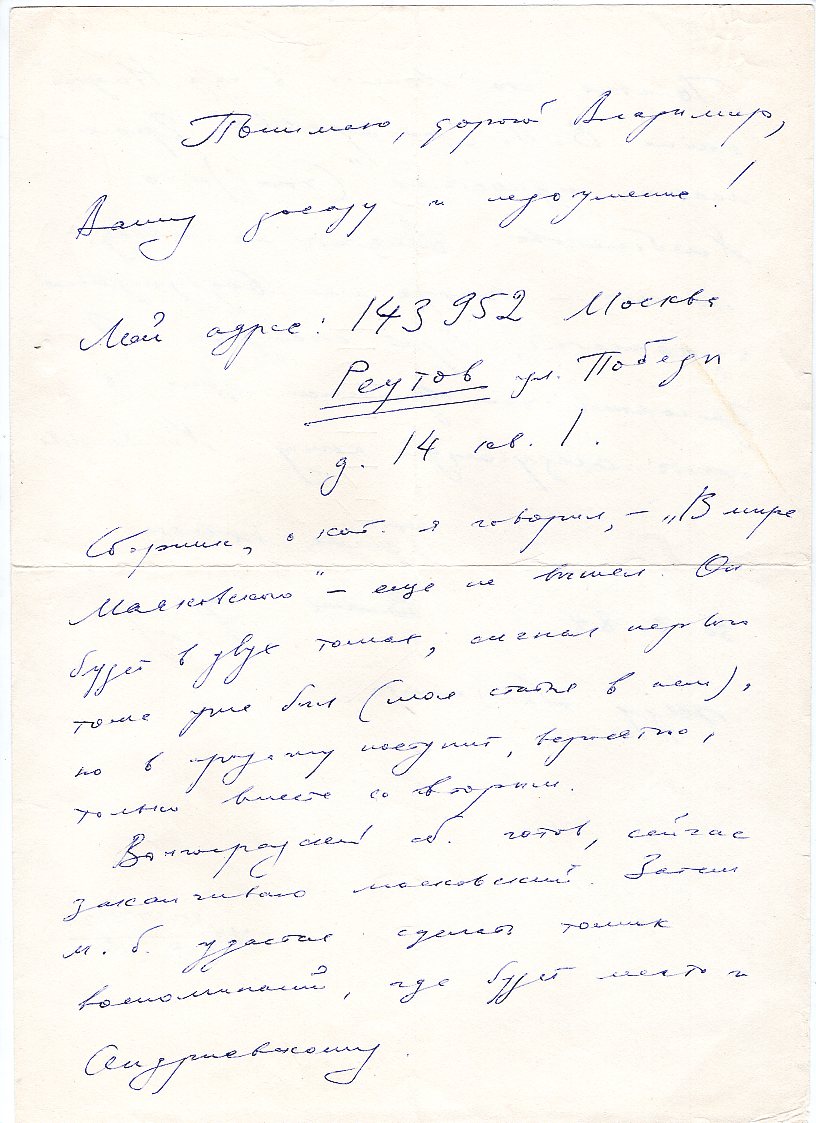 Понимаю, дорогой Владимир,
Вашу досаду и недоумение!
Мой адрес: 143952 Москва
Реутов ул. Победы
д. 14 кв. 1.
Сборник, о кот. я говорил, – „В мире
Маяковского" – еще не вышел. Он
будет в двух томах, сигнал первого
тома уже был (моя статья в нем),
но в продажу поступит, вероятно,
только вместе со вторым.
Волгоградский сб. готов, сейчас
заканчиваю московский. Затем
м. б. удастся сделать томик
воспоминаний, где будет место и
Андриевскому.